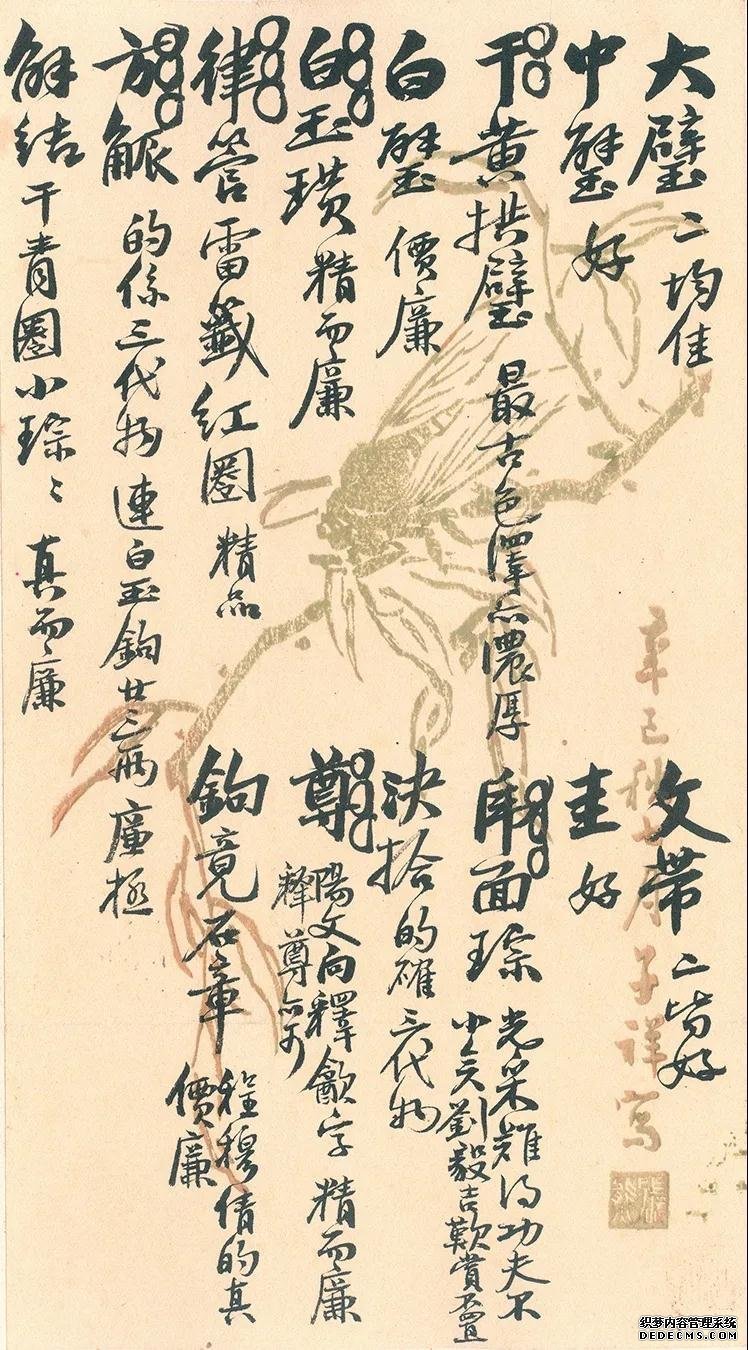 大璧二均佳
文带二皆好
中璧好
圭好
干黄拱璧 最古色泽亦濃厚
面琮 光采難得功夫不少矣劉毅吉歎賞不置
白璧價廉
決拾的確三代物
白玉瓆精而廉
尊陽文向釋歙字 精而廉
釋尊亦可
律管雷籤红圈精品
鉤竟石章程穆倩的真
價廉
方觚的係三代物連白玉鉤廿三兩廉極
解結干青圈小琮々真而廉
辛巳秋七月子祥寫
织梦内容管理系统
DEDECMS.COM